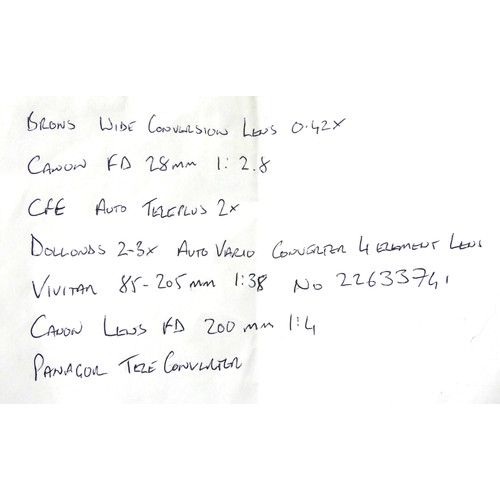 BRONS WIDE CONVERSION LENS 0.42X
CANON FD 28mm 1: 2.8
CFE AUTO TELEPLUS 2x
DOLLONDS 2-3x AUTO VARIO CONVERTER 4 ELEMENT LENS
VIVITAR 85-205mm 1:38 No 22633741
CANON LENS FD 200mm 1:4
PANAGOR TELE CONVERTER